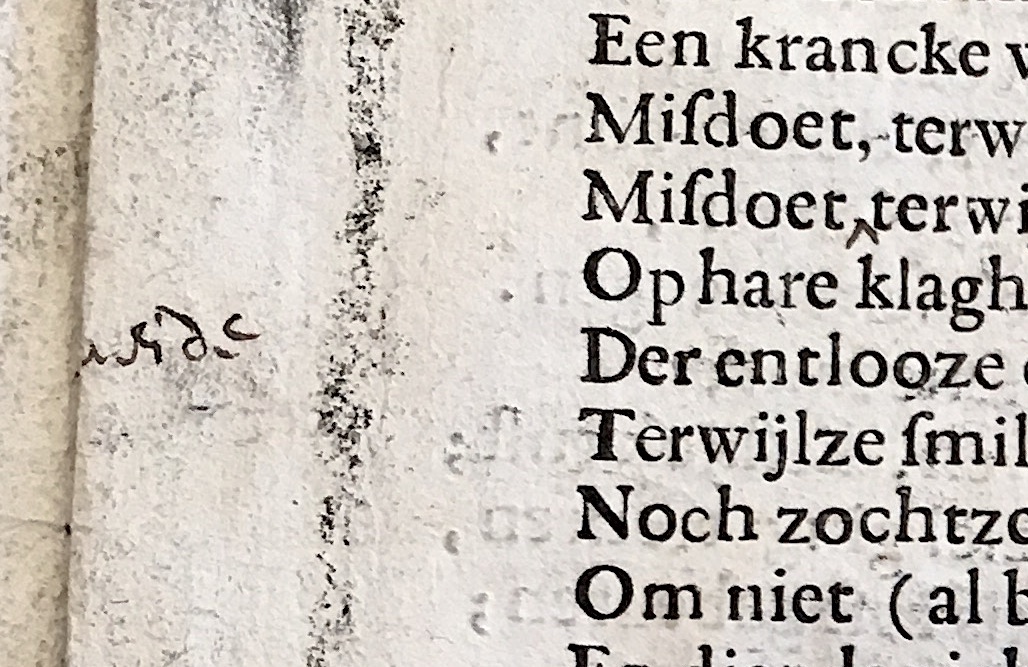 Een krancke
Miſdoet, terw
Miſdoet, terwi
Op hare klagh
Der entlooze
Terwijlze ſmil
Noch zochtze
Om niet (al b